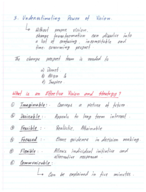 3. Underestimating Power of Vision
↳ Without proper vision,
change transformation can dissolve into
a list of confusing, incompatible and
time consuming project
The change project team is needed to
a) Direct
b) Align &
c) Inspire
What is an Effective Vision and Strategy?
① Imaginable: Conveys a picture of future
② Desirable: Appeals to long term interest
③ Feasible: Realistic, Attainable
④ Focused: Gives guidance in decision making
⑤ Flexible: Allows individual initiative and
alternative responses
⑥ Communicable:
↳ Can be explained in five minutes